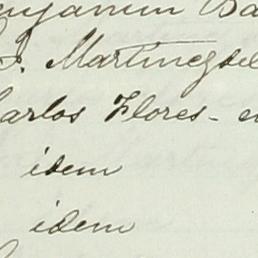 enjamin Ba
S. Martinez del
Carlos Flores - e
idem
idem